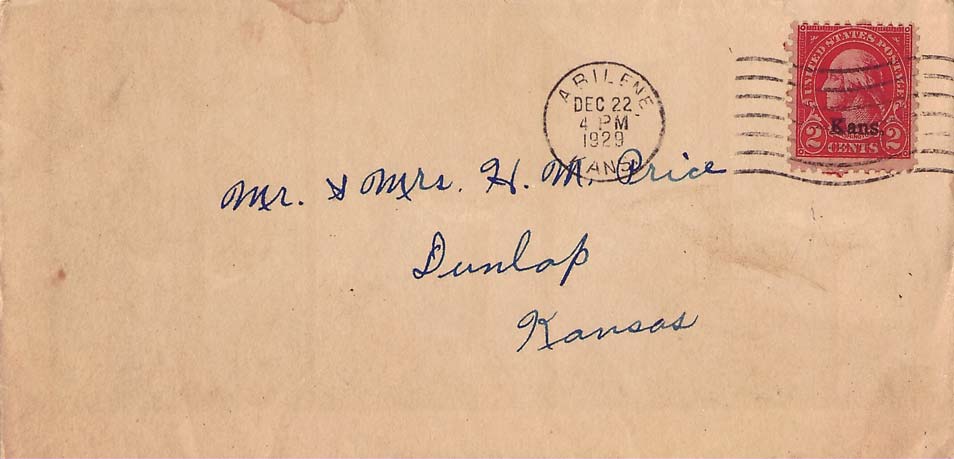 ABILENE
DEC 22
4 PM
1929
KANS.
UNITED STATES POSTAGE
Kans.
2 CENTS 2
Mr. & Mrs. H. M. Price
Dunlap
Kansas